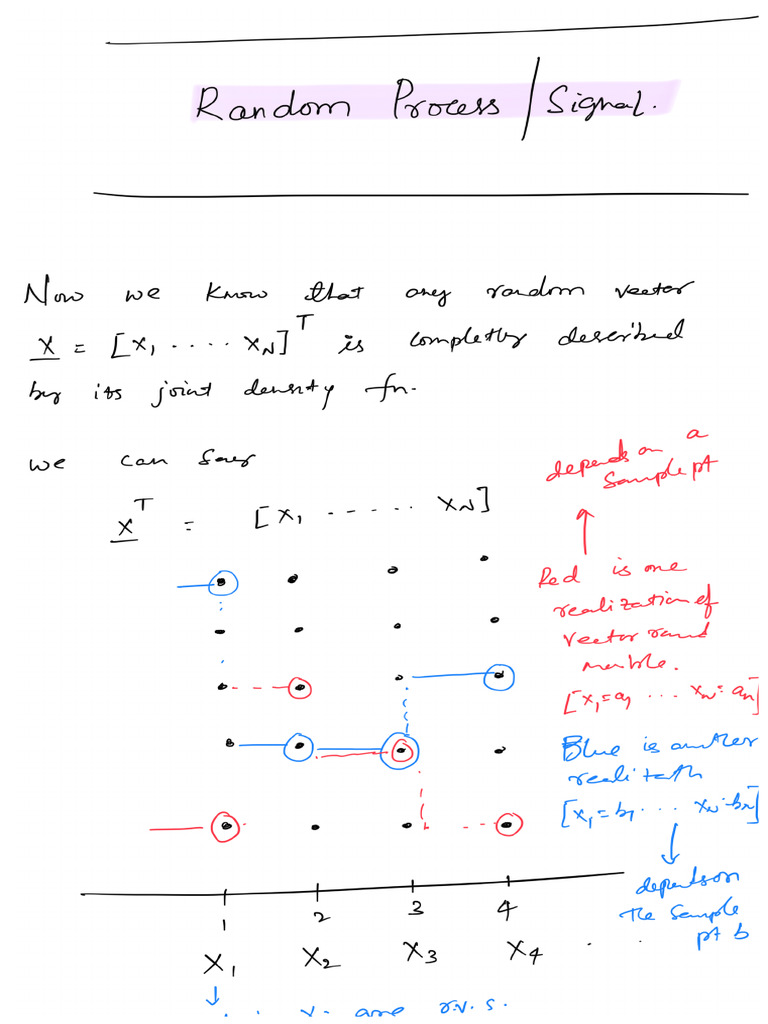 Random Process / Signal.
Now we know that any random vector
X = [X1 ..... XN]^T is completly described
by its joint density fn.
we can say
X^T = [X1 ------.. XN]
depends on a
Sample pt
Red is one
realization of
vector rand
[X1=a1 ... XN=an]
Blue is another
[X1=b1 ... XN=bn]
depends on
the sample
pt b
1 2 3 4
X1 X2 X3 X4 . . .
are r.v.s.